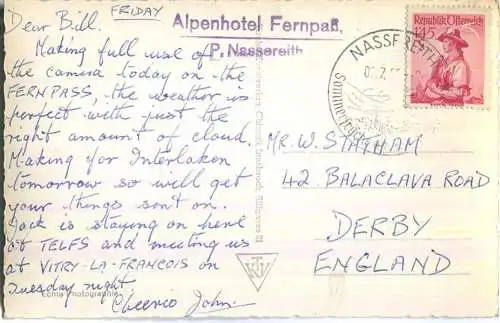 FRIDAY
Dear Bill,
Making full use of
the camera today on the
FERNPASS, the weather is
perfect with just the
right amount of cloud.
Making for Interlaken
tomorrow so will get
your things sent on.
Jack is staying on here
at TELFS and meeting us
at VITRY-LA-FRANCOIS on
Tuesday night.
Cheerio John.
Echte Photographie
Alpenhotel Fernpaß,
P. Nassereith
NASSEREITH
Republik Österreich
1.45
MR. W. STATHAM
42 BALACLAVA ROAD
DERBY
ENGLAND